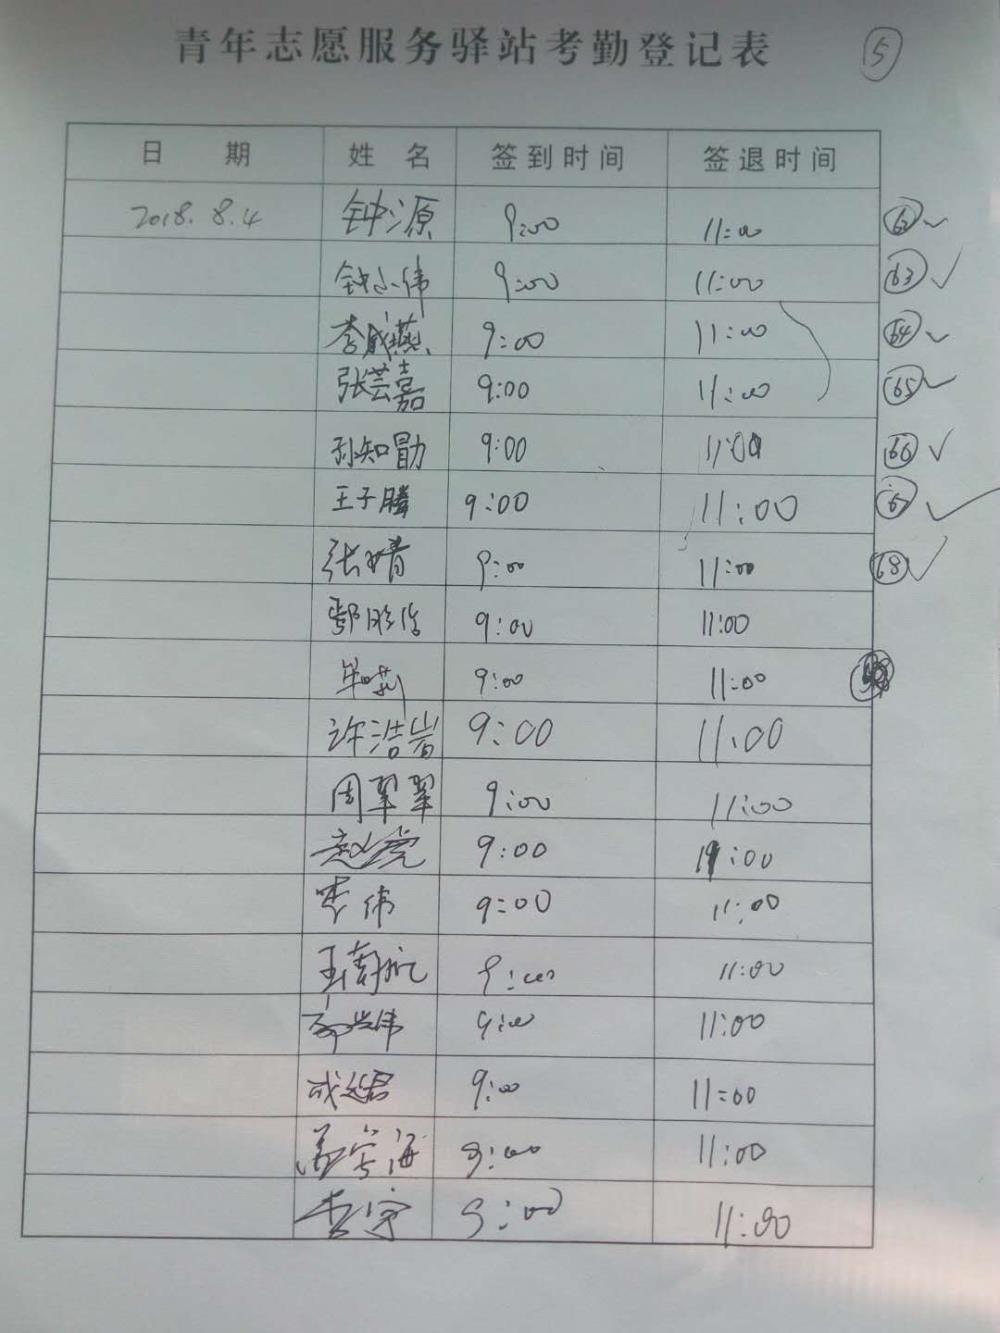 青年志愿服务驿站考勤登记表 ⑤
日 期 姓 名 签到时间 签退时间
2018.8.4 钟源 9:00 11:00 62 ✓
钟小伟 9:00 11:00 63 ✓
李成燕 9:00 11:00 64 ✓
张芸嘉 9:00 11:00 65 ✓
孙知勖 9:00 11:00 66 ✓
王子腾 9:00 11:00 67 ✓
张婧 9:00 11:00 68 ✓
鄢 9:00 11:00
牟 9:00 11:00
许浩岩 9:00 11:00
周翠翠 9:00 11:00
赵亮 9:00 11:00
李伟 9:00 11:00
王南航 9:00 11:00
郭兴伟 9:00 11:00
成延君 9:00 11:00
海 9:00 11:00
李宁 9:00 11:00